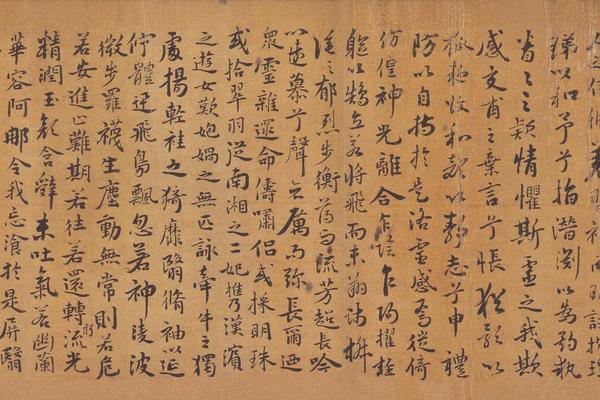 珶以和予兮指潛淵以為期執
眷眷之款情懼斯靈之我欺
感交甫之棄言兮悵猶豫以
狐疑收和顏以靜志兮申禮
防以自持於是洛靈感焉徙倚
彷徨神光離合乍陰乍陽擢輕
軀以鶴立若將飛而未翔踐椒
塗之郁烈步衡薄而流芳超長吟
以遠慕兮聲哀厲而彌長爾迺
衆靈雜遝命儔嘯侶或採明珠
或拾翠羽從南湘之二妃攜漢濱
之遊女歎匏媧之無匹詠牽牛之獨
處揚輕袿之猗靡翳脩袖以延
佇體迅飛鳧飄忽若神陵波
微步羅襪生塵動無常則若危
若安進止難期若往若還轉眄流光
精潤玉顏含辭未吐氣若幽蘭
華容阿那令我忘飡於是屏翳